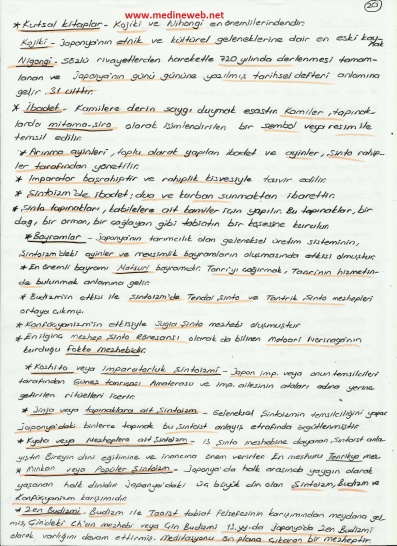 www.medineweb.net
20
* Kutsal kitaplar - Kojiki ve Nihongi en önemlilerindendir.
Kojiki - Japonya'nın etnik ve kültürel geleneklerine dair en eski kaynak
Nigongi - sözlü rivayetlerden hareketle 720 yılında derlenmesi tamam-
lanan ve Japonya'nın günü gününe yazılmış tarihsel defteri anlamına
gelir. 31 cilttir.
* İbadet - Kamilere derin saygı duymak esastır. Kamiler, tapınak-
larda mitama-siro olarak isimlendirilen bir sembol veya resim ile
temsil edilir.
* Arınma ayinleri, toplu olarak yapılan ibadet ve ayinler, Şinto rahip-
ler tarafından yönetilir.
* İmparator başrahiptir ve rahiplik kisvesiyle tasvir edilir.
* Şintoizm'de ibadet; dua ve kurban sunmaktan ibarettir.
* Şinto tapınakları, kabilelere ait kamiler için yapılır. Bu tapınaklar, bir
dağ, bir orman, bir çağlayan gibi tabiatın bir köşesine kurulur.
* Bayramlar - Japonya'nın tarımcılık olan geleneksel üretim sisteminin,
Şintoizm'deki ayinler ve mevsimlik bayramların oluşmasında etkisi olmuştur.
* En önemli bayramı Matsuri bayramıdır. Tanrı'yı çağırmak, Tanrı'nın hizmetin-
de bulunmak anlamına gelir.
* Budizm'in etkisi ile Şintoizm'de Tendai Şinto ve Tantrik Şinto mezhepleri
ortaya çıkmış.
* Konfüçyanizm'in etkisiyle Suga Şinto mezhebi oluşmuştur
* En ilginç mezhep Şinto Rönesansı olarak da bilinen Motoori Norinaga'nın
kurduğu Fokko mezhebidir.
* Koshitu veya İmparatorluk Şintoizmi - Japon imp. veya onun temsilcileri
tarafından Güneş tanrısası Amaterasu ve imp. ailesinin ataları adına yerine
getirilen ritüelleri içerir.
* Jinja veya tapınaklara ait Şintoizm - Geleneksel Şintoizmin temsilciliğini yapar
Japonya'daki binlerce tapınak bu, Şintoist anlayış etrafında örgütlenmiştir
* Kyoha veya Mezheplere ait Şintoizm - 13 Şinto mezhebine dayanan, Şintoist anla-
yıştır. Bireyin dini eğitimine ve inancına önem verirler. En meşhuru Tenrikyo mez.
* Minkan veya Popüler Şintoizm - Japonya'da halk arasında yaygın olarak
yaşanan halk dinidir. Japonya'daki üç büyük din olan Şintoizm, Budizm ve
Konfüçyanizm karışımıdır.
* Zen Budizmi - Budizm ile Taoist tabiat felsefesinin karışımından meydana gel-
miş, Çin'deki Ch'an mezhebi veya Çin Budizmi 12. yy.da Japonya'da Zen Budizmi
olarak varlığını devam ettirmiş. Meditasyonu ön plana çıkaran bir mezheptir.